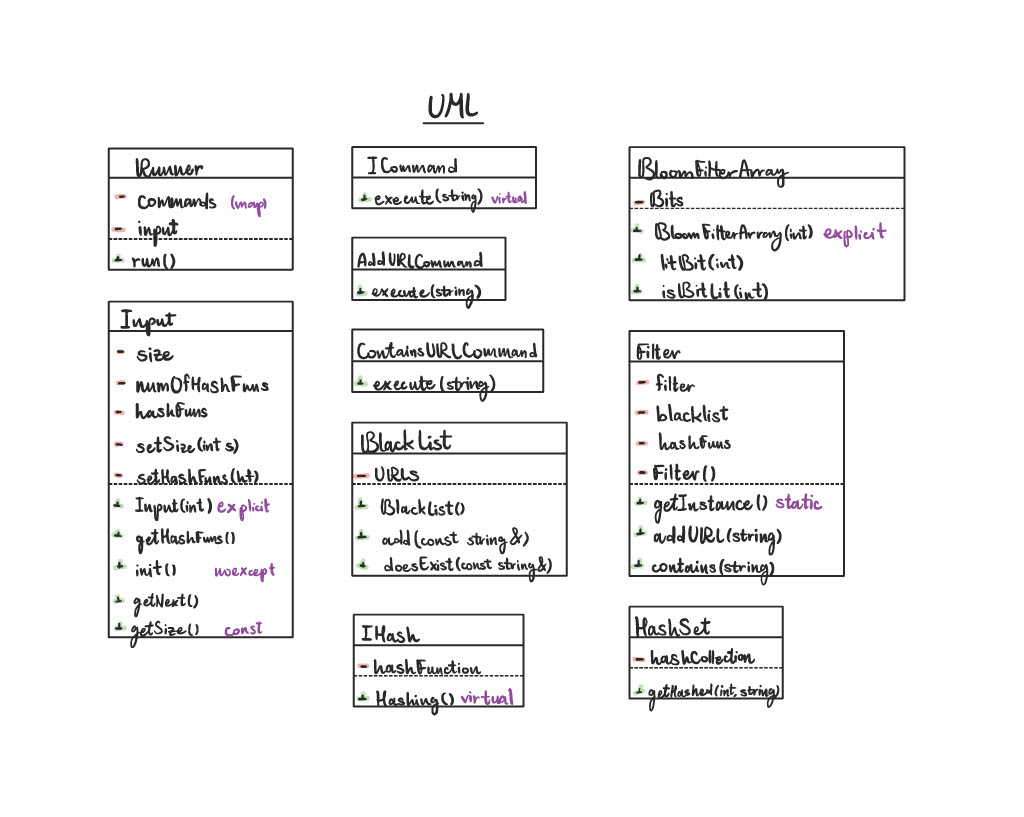 UML
Runner
- Commands (map)
- input
+ run()
Input
- size
- numOfHashFuns
- hashFuns
- setSize(int s)
- setHashFuns(int)
+ Input(int) explicit
+ getHashFuns()
+ init() noexcept
+ getNext()
+ getSize() const
ICommand
+ execute(string) virtual
AddURLCommand
+ execute(string)
ContainsURLCommand
+ execute(string)
BlackList
- URLs
+ BlackList()
+ add(const string&)
+ doesExist(const string&)
IHash
- hashFunction
+ Hashing() virtual
BloomFilterArray
- Bits
+ BloomFilterArray(int) explicit
+ litBit(int)
+ isBitLit(int)
Filter
- filter
- blacklist
- hashFuns
- Filter()
+ getInstance() static
+ addURL(string)
+ contains(string)
HashSet
- hashCollection
+ getHashed(int, string)